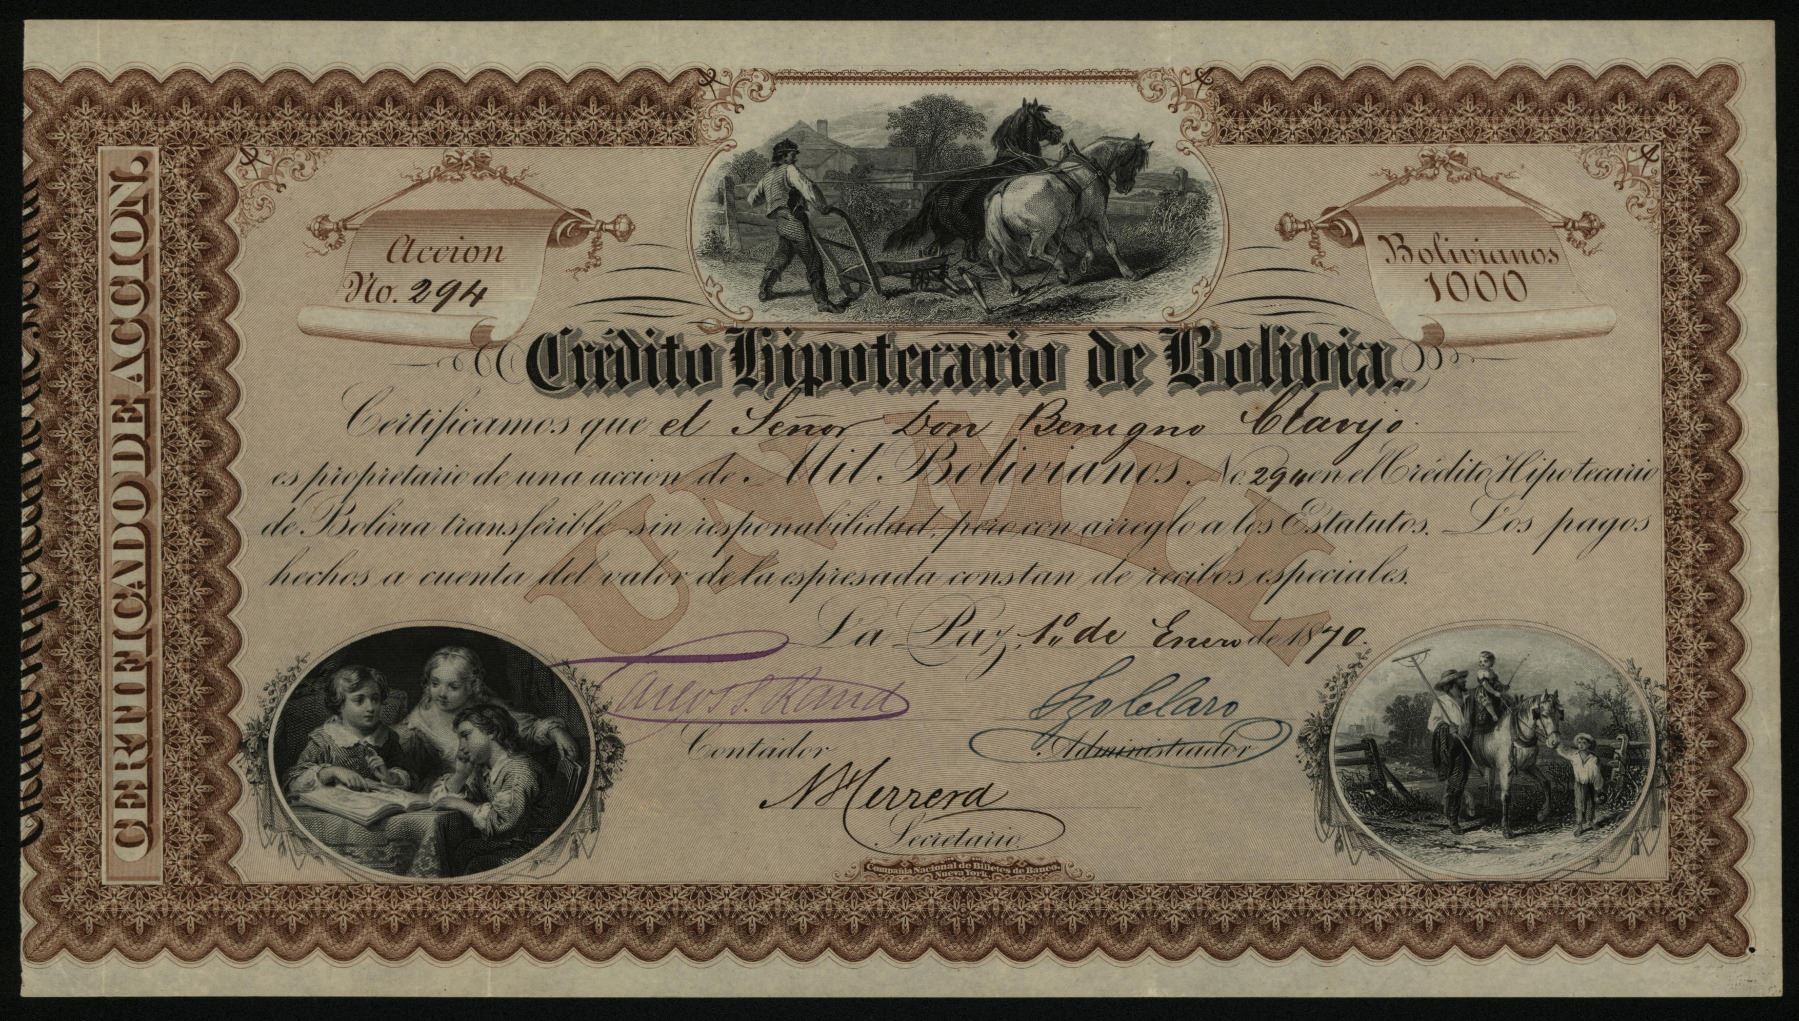 CERTIFICADO DE ACCION.
Accion
No. 294
Bolivianos
1000
Crédito Hipotecario de Bolivia.
Certificamos que el Señor Don Benigno Clavijo
es propietario de una accion de Mil Bolivianos. No. 294 en el Crédito Hipotecario
de Bolivia transferible sin responabilidad, pero con arreglo a los Estatutos. Los pagos
hechos a cuenta del valor de la espresada constan de recibos especiales.
UN MIL
La Paz, 1º de Enero de 1870.
Contador
Administrador
N Herrera
Secretario
Compañia Nacional de Billetes de Banco.
Nueva York